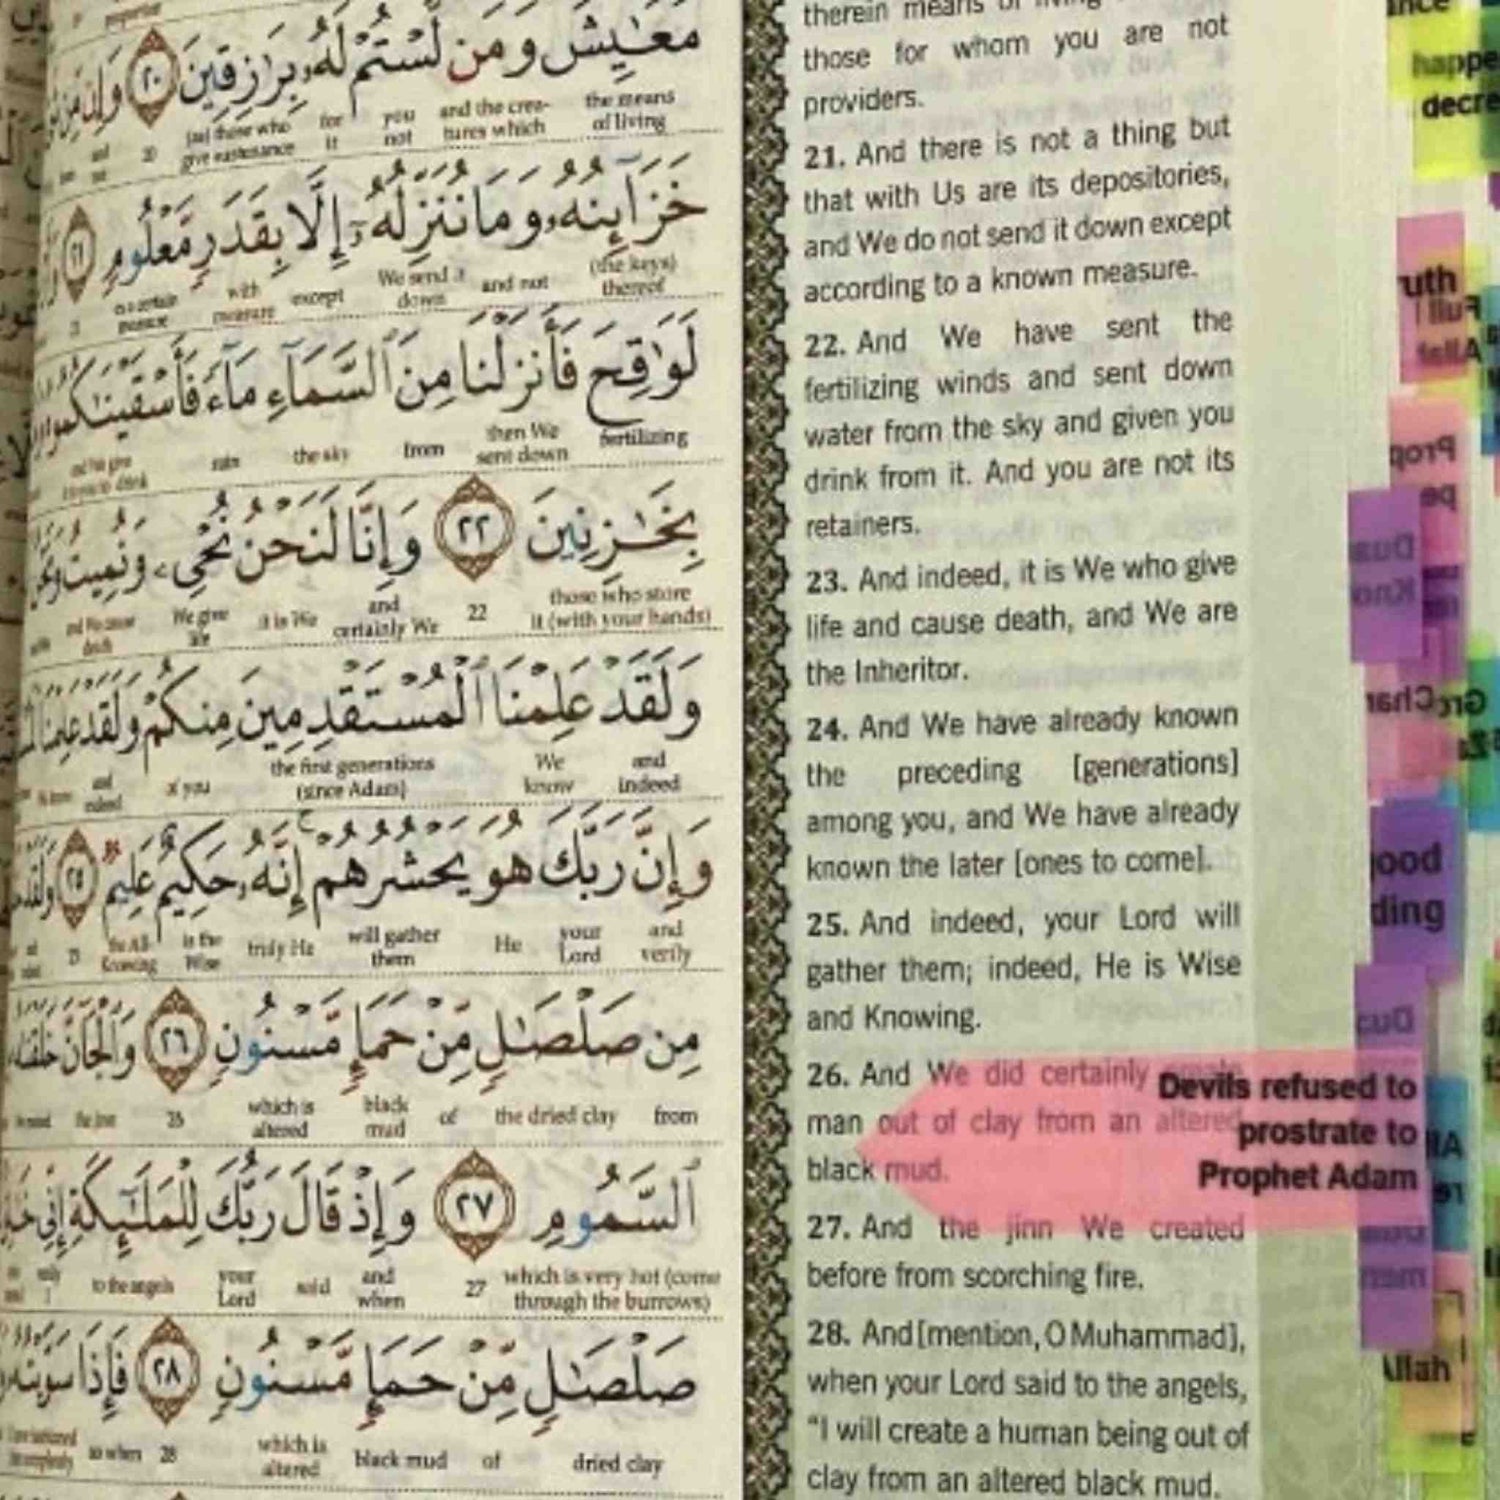 مَعَـٰيِشَ وَمَن لَّسْتُمْ لَهُۥ بِرَٰزِقِينَ ٢٠ وَإِن مِّن
the means of living
and the crea-tures which
you not
for it
give sustenance
20
خَزَآئِنُهُۥ وَمَا نُنَزِّلُهُۥٓ إِلَّا بِقَدَرٍ مَّعْلُومٍ ٢١
(the keys) thereof
and not
We send it down
except
with measure
21
لَوَٰقِحَ فَأَنزَلْنَا مِنَ ٱلسَّمَآءِ مَآءً فَأَسْقَيْنَـٰكُمُوهُ
fertilizing
then We sent down
from
the sky
rain
بِخَـٰزِنِينَ ٢٢ وَإِنَّا لَنَحْنُ نُحْىِۦ وَنُمِيتُ
those who store it (with your hands)
22
and certainly We
it is We
We give life
and We cause death
وَلَقَدْ عَلِمْنَا ٱلْمُسْتَقْدِمِينَ مِنكُمْ وَلَقَدْ عَلِمْنَا
and indeed
We know
the first generations (since Adam)
of you
and indeed
وَإِنَّ رَبَّكَ هُوَ يَحْشُرُهُمْ إِنَّهُۥ حَكِيمٌ عَلِيمٌ ٢٥ وَلَقَدْ
and verily
your Lord
He
will gather them
truly He
is the Wise
the All-Knowing
25
مِن صَلْصَـٰلٍ مِّنْ حَمَإٍ مَّسْنُونٍ ٢٦ وَٱلْجَآنَّ خَلَقْنَـٰهُ
from
the dried clay
of
black mud
which is altered
26
the jinn
ٱلسَّمُومِ ٢٧ وَإِذْ قَالَ رَبُّكَ لِلْمَلَـٰٓئِكَةِ إِنِّى
which is very hot (come through the burrows)
27
and when
said
your Lord
to the angels
صَلْصَـٰلٍ مِّنْ حَمَإٍ مَّسْنُونٍ ٢٨ فَإِذَا سَوَّيْتُهُۥ
dried clay
of
black mud
which is altered
28
so when
therein means of living
those for whom you are not
providers.
21. And there is not a thing but
that with Us are its depositories,
and We do not send it down except
according to a known measure.
22. And We have sent the
fertilizing winds and sent down
water from the sky and given you
drink from it. And you are not its
retainers.
23. And indeed, it is We who give
life and cause death, and We are
the Inheritor.
24. And We have already known
the preceding [generations]
among you, and We have already
known the later [ones to come].
25. And indeed, your Lord will
gather them; indeed, He is Wise
and Knowing.
26. And We did certainly create
man out of clay from an altered
black mud.
27. And the jinn We created
before from scorching fire.
28. And [mention, O Muhammad],
when your Lord said to the angels,
"I will create a human being out of
clay from an altered black mud.
Devils refused to
prostrate to
Prophet Adam
happe
decre
uth
Prop
pe
Dua
Kno
ood
ding
Allah